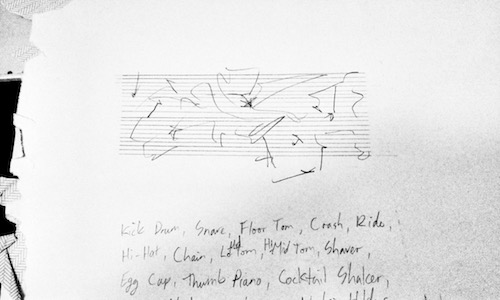 Kick Drum, Snare, Floor Tom, Crash, Ride,
Hi-Hat, Chain, Tom, Mid Tom, Shaver,
Egg Cap, Thumb Piano, Cocktail Shaker,